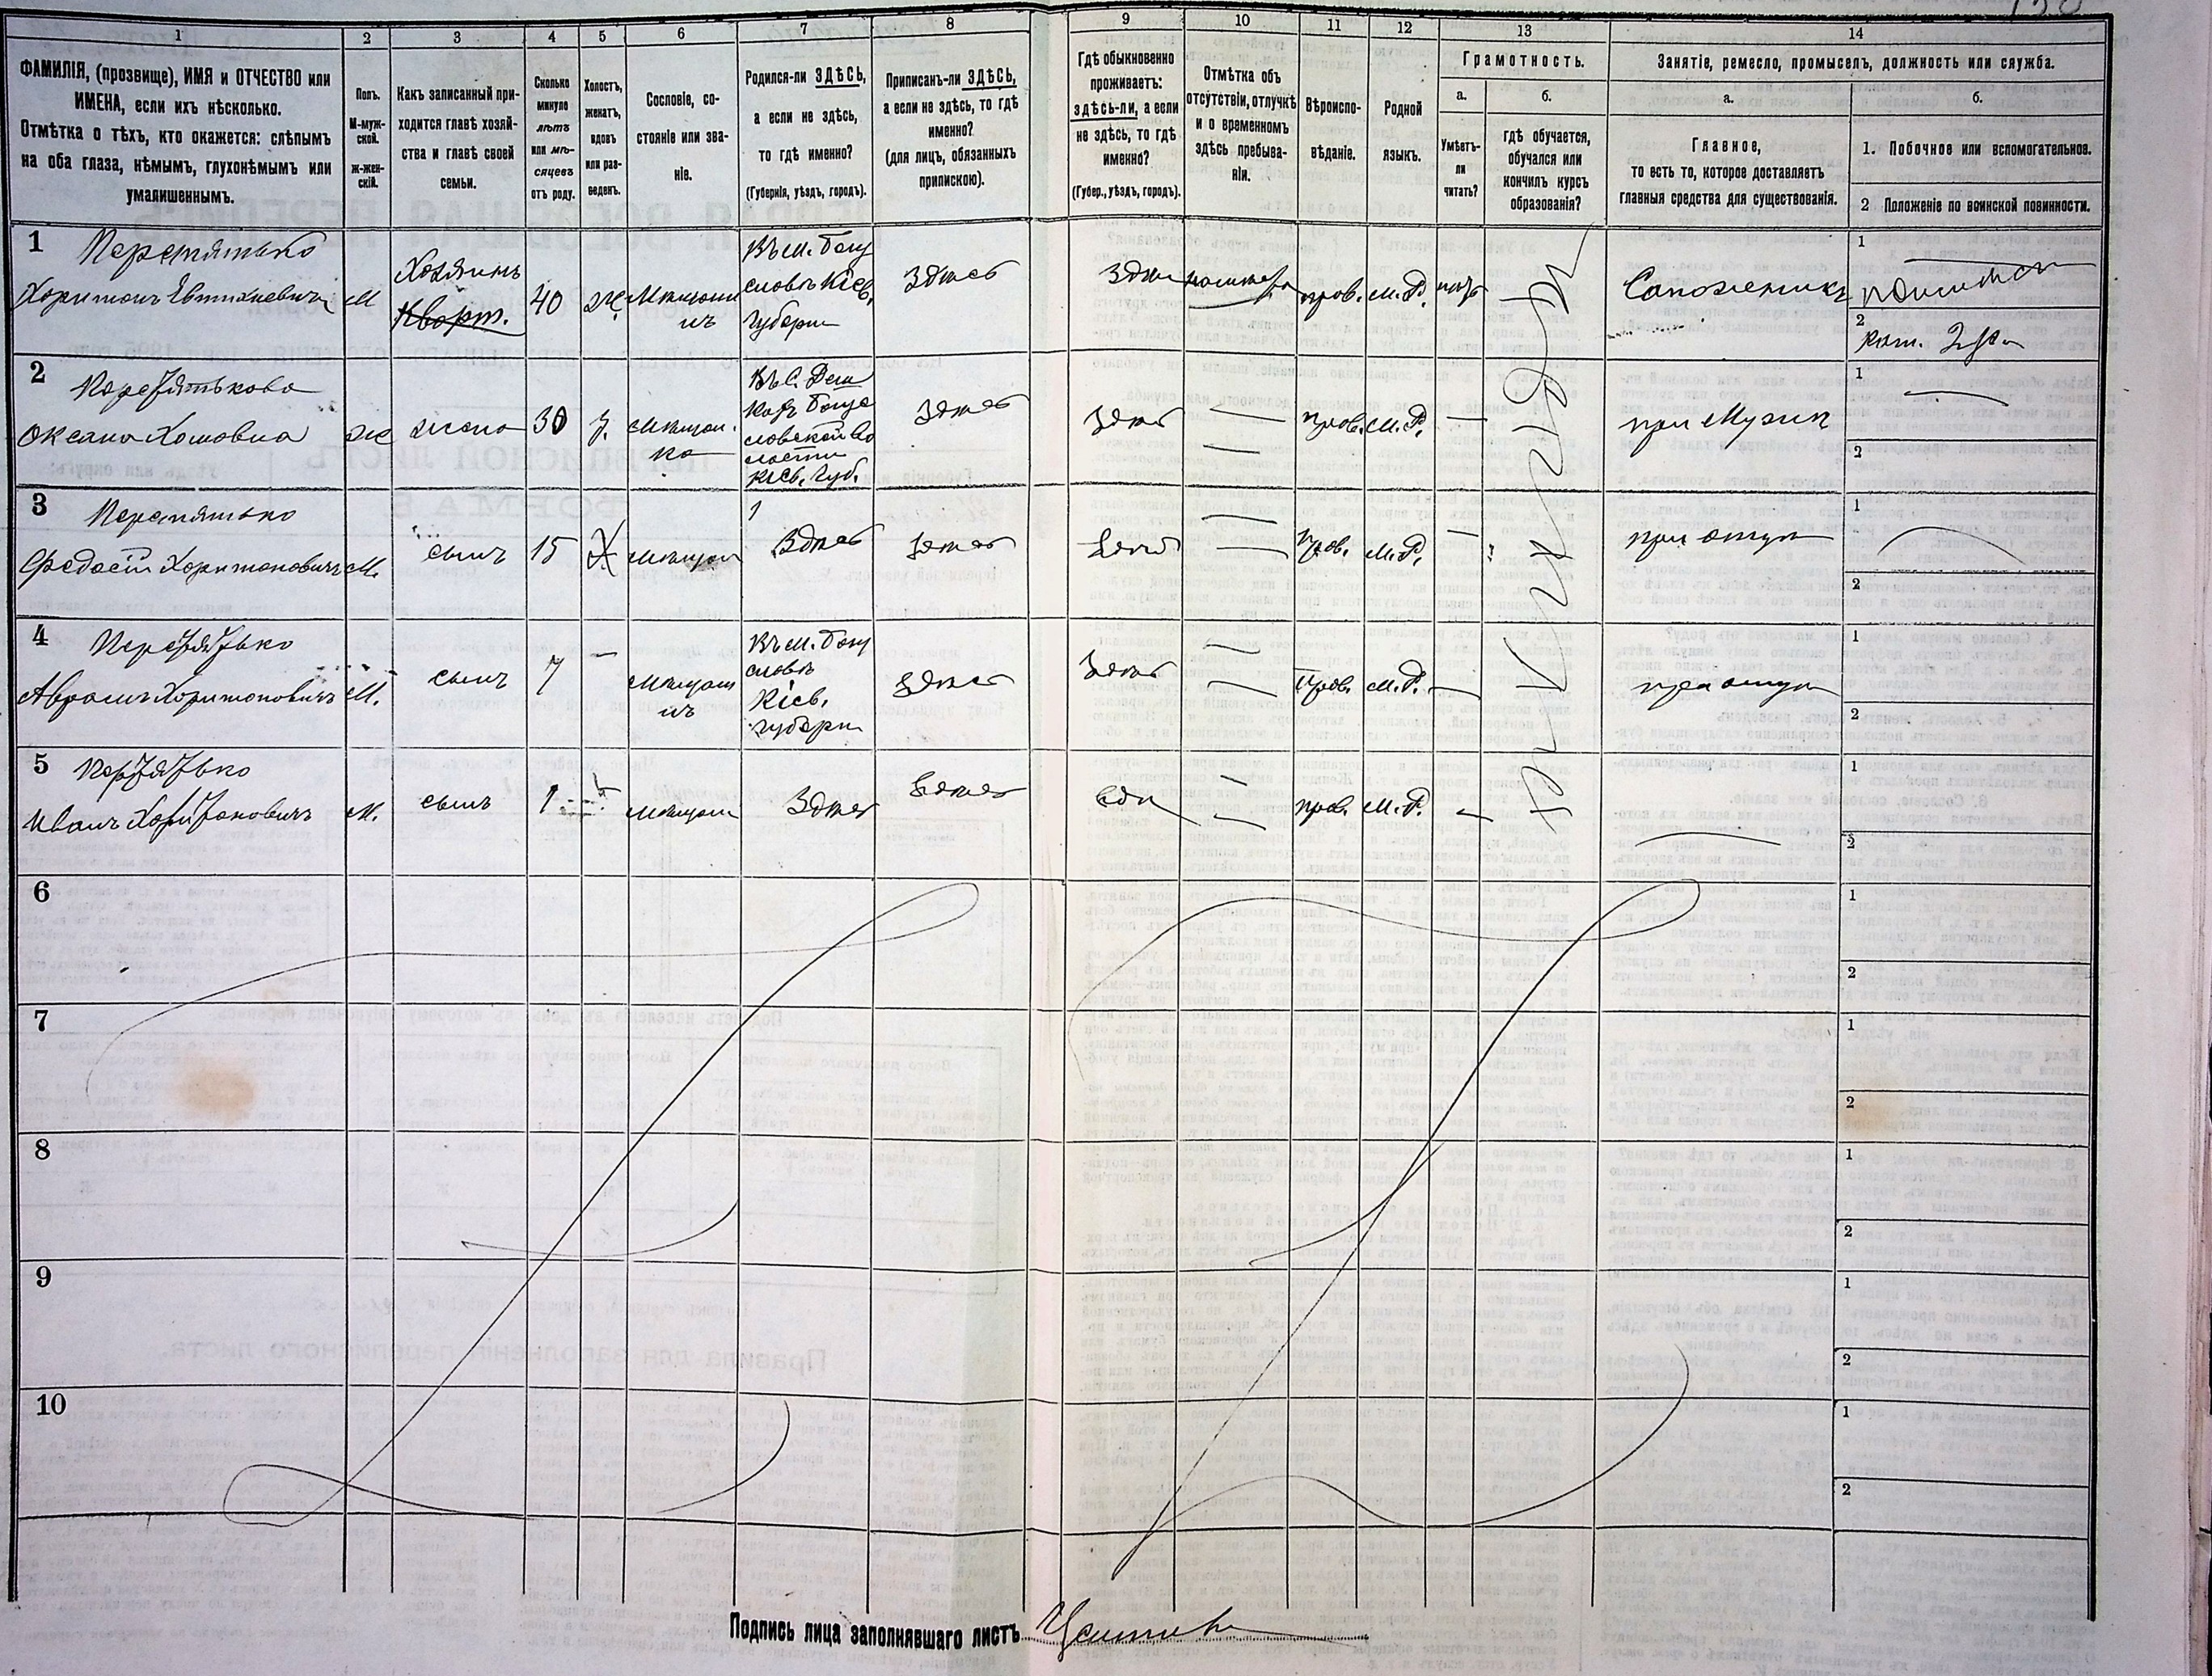 1
2
3
4
5
6
7
8
9
10
11
12
13
14
ФАМИЛІЯ, (прозвище), ИМЯ и ОТЧЕСТВО или
ИМЕНА, если ихъ нѣсколько.
Отмѣтка о тѣхъ, кто окажется: слѣпымъ
на оба глаза, нѣмымъ, глухонѣмымъ или
умалишеннымъ.
Полъ.
М-муж-
ской.
ж-жен-
скій.
Какъ записанный при-
ходится главѣ хозяй-
ства и главѣ своей
семьи.
Сколько
минуло
лѣтъ
или мѣ-
сяцевъ
отъ роду.
Холостъ,
женатъ,
вдовъ
или раз-
веденъ.
Сословіе, со-
стояніе или зва-
ніе.
Родился-ли ЗДѢСЬ,
а если не здѣсь,
то гдѣ именно?
(Губернія, уѣздъ, городъ).
Приписанъ-ли ЗДѢСЬ,
а если не здѣсь, то гдѣ
именно?
(для лицъ, обязанныхъ
припискою).
Гдѣ обыкновенно
проживаетъ:
ЗДѢСЬ-ЛИ, а если
не здѣсь, то гдѣ
именно?
(Губер., уѣздъ, городъ).
Отмѣтка объ
отсутствіи, отлучкѣ
и о временномъ
здѣсь пребыва-
ніи.
Вѣроиспо-
вѣданіе.
Родной
языкъ.
Грамотность.
а.
Умѣетъ-
ли
читать?
б.
гдѣ обучается,
обучался или
кончилъ курсъ
образованія?
Занятіе, ремесло, промыселъ, должность или служба.
а.
Главное,
то есть то, которое доставляетъ
главныя средства для существованія.
б.
1. Побочное или вспомогательное.
2 Положеніе по воинской повинности.
1 Перетятько
Харитонъ Евтихиевичъ
М
Хозяинъ
Кварт.
40
Ж
Мещани
нъ
Въ м. Богу
славѣ Кіев.
Губерни
Здесь
прав.
М.Р.
Сапожникъ
1
2
2 Перетятькова
Оксана Хомовна
Ж
жена
30
З.
Мещан.
ка
Здесь
Здесь
прав.
М.Р.
при Мужи
1
2
3 Перетятько
Федосій Харитоновичъ
М.
сынъ
15
Х
мещан
Здесь
Здесь
Здесь
прав.
М.Р.
при отцу
1
2
4 Перетятько
Аврамъ Харитоновичъ
М.
сынъ
7
мещан
нъ
Въ м. Богу
славѣ
Кіев.
губерн
Здесь
Здесь
прав.
М.Р.
при отцу
1
2
5 Перетятько
Иванъ Харитоновичъ
М.
сынъ
1
мещан
Здесь
Здесь
прав.
М.Р.
1
2
6
1
2
7
1
2
8
1
2
9
1
2
10
1
2
Подпись лица заполнявшаго листъ